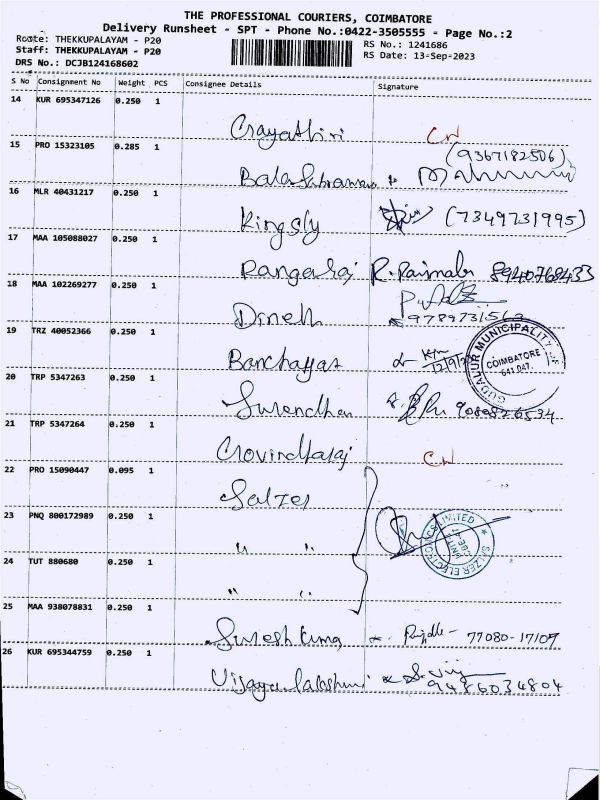 THE PROFESSIONAL COURIERS, COIMBATORE
Delivery Runsheet - SPT - Phone No.:0422-3505555 - Page No.:2
Route: THEKKUPALAYAM - P20
RS No.: 1241686
Staff: THEKKUPALAYAM - P20
RS Date: 13-Sep-2023
DRS No.: DCJB124168602
S No Consignment No Weight PCS Consignee Details Signature
14 KUR 695347126 0.250 1
Gayathiri
15 PRO 15323105 0.285 1
(9367182506)
16 MLR 40431217 0.250 1
Kingsly (7349731995)
17 MAA 105088027 0.250 1
Rangaraj 8940768433
18 MAA 102269277 0.250 1
Dinesh 9789731563
19 TRZ 40052366 0.250 1
GUDALUR MUNICIPALITY
COIMBATORE
641 047.
20 TRP 5347263 0.250 1
Surendhan
21 TRP 5347264 0.250 1
Govindharaj
22 PRO 15090447 0.095 1
Salzer
23 PNQ 800172989 0.250 1
" "
SALZER ELECTRONICS LIMITED
24 TUT 880680 0.250 1
" "
25 MAA 938078831 0.250 1
Suresh Kumar 77080-17109
26 KUR 695344759 0.250 1
Vijaya lakshmi 9486034804